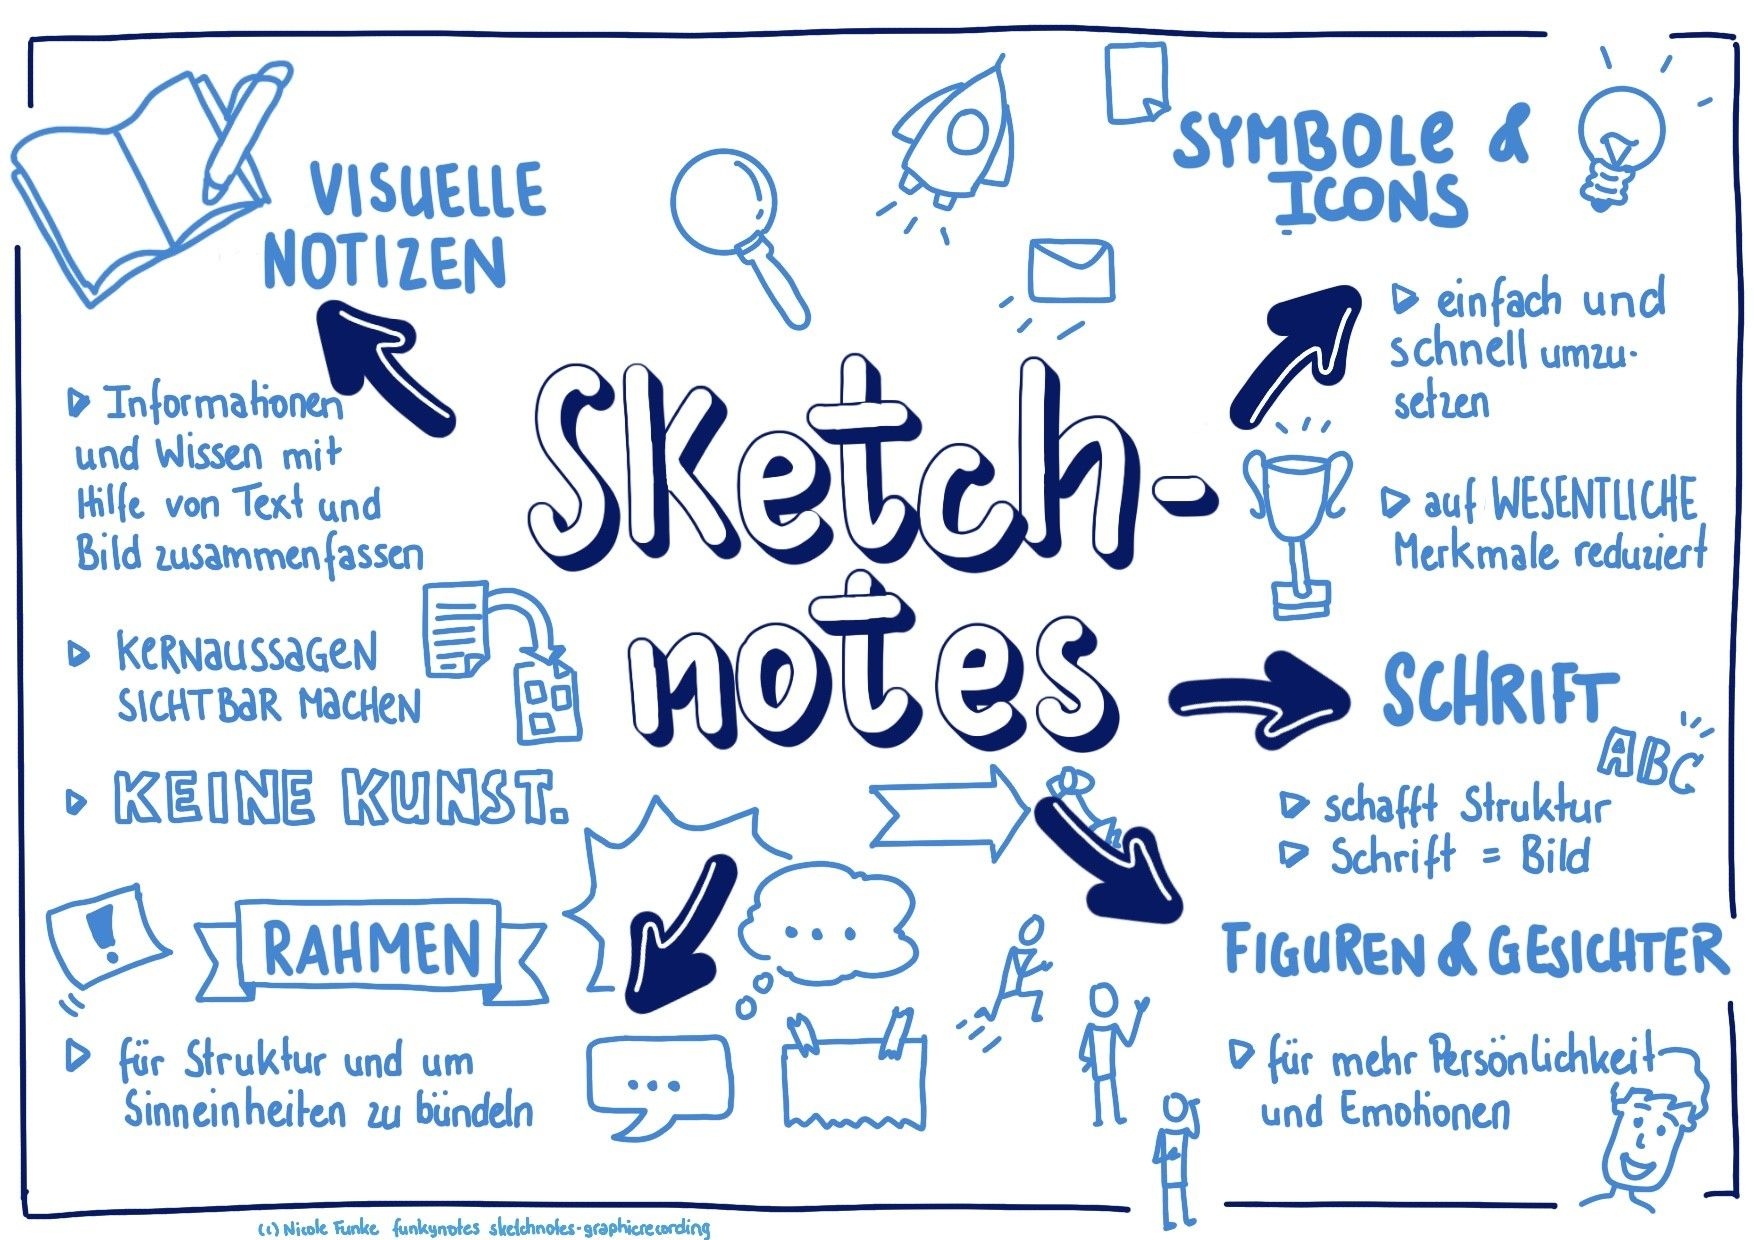 VISUELLE
NOTIZEN
▷ Informationen
und Wissen mit
Hilfe von Text und
Bild zusammenfassen
▷ KERNAUSSAGEN
SICHTBAR MACHEN
▷ KEINE KUNST.
Sketch-
notes
SYMBOLE &
ICONS
▷ einfach und
schnell umzu-
setzen
▷ auf WESENTLICHE
Merkmale reduziert
SCHRIFT
ABC
▷ schafft Struktur
▷ Schrift = Bild
!
RAHMEN
▷ für Struktur und um
Sinneinheiten zu bündeln
...
...
FIGUREN & GESICHTER
▷ für mehr Persönlichkeit
und Emotionen
(c) Nicole Funke funkynotes sketchnotes-graphicrecording